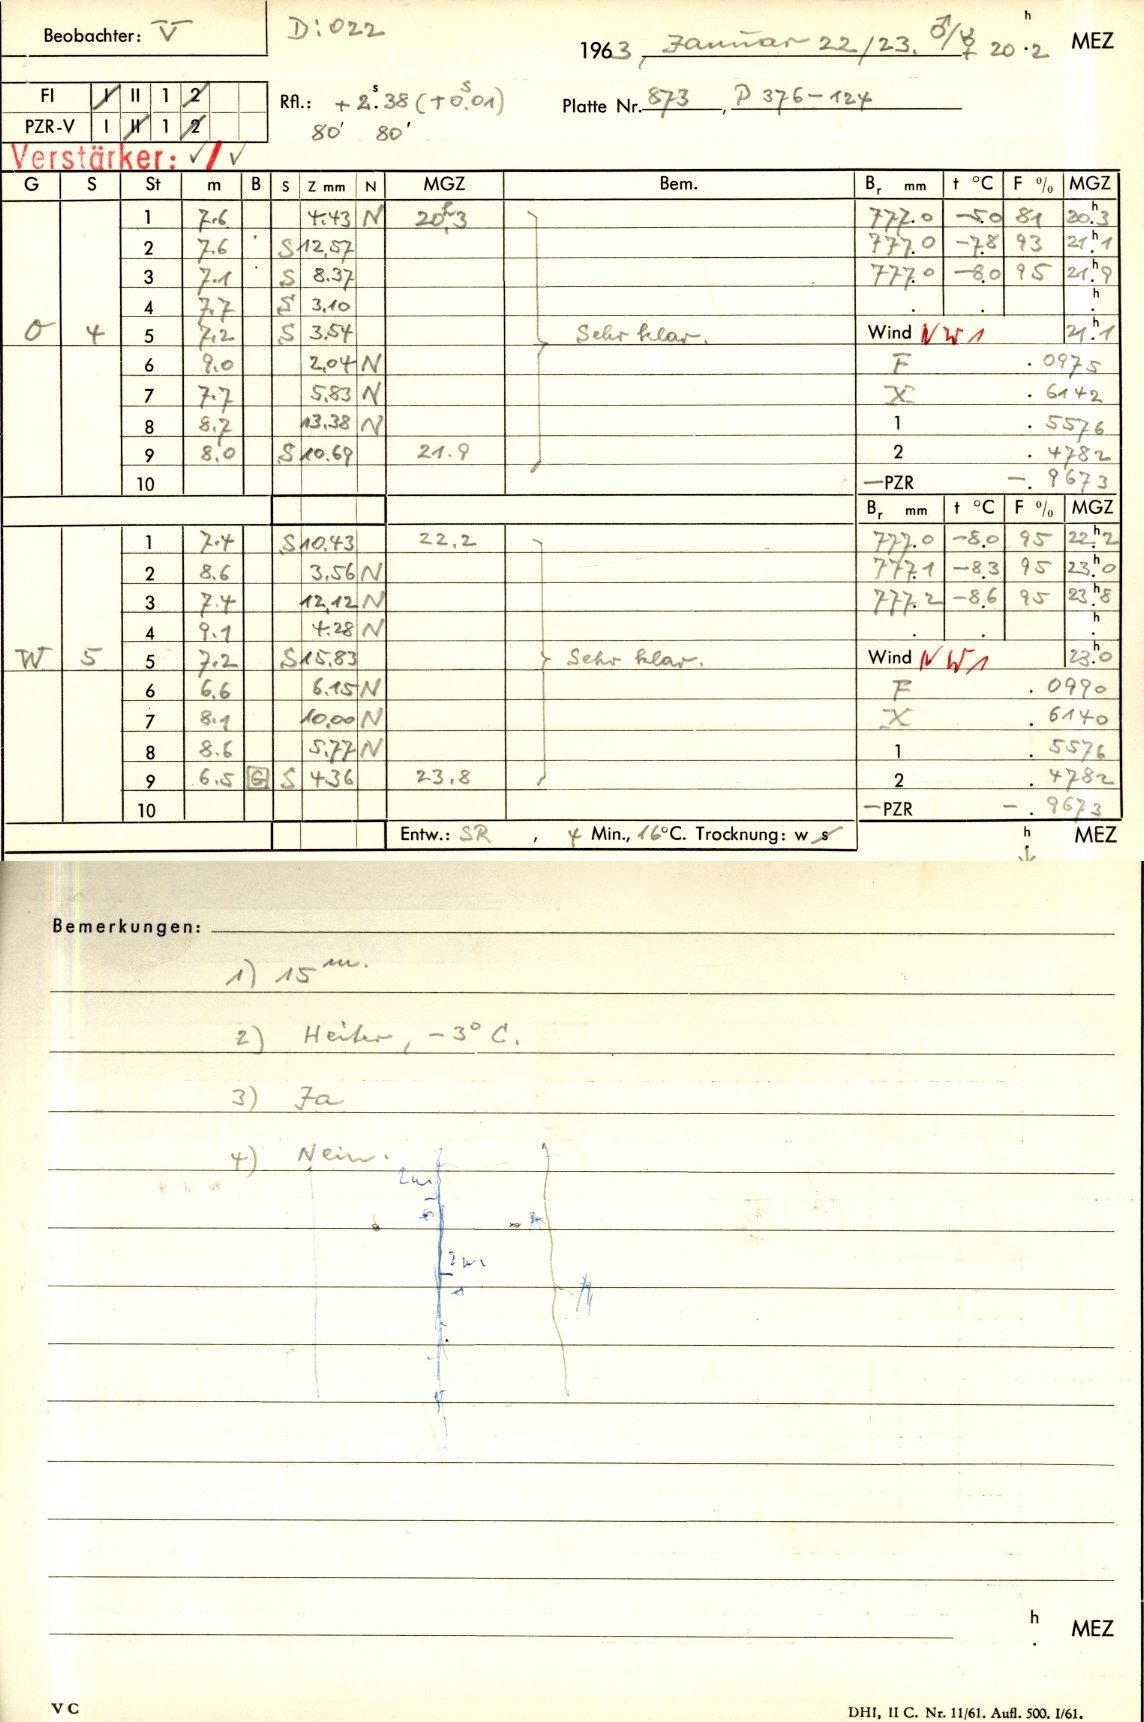 Beobachter: V
D:022
1963, Januar 22/23. ♂/☿ 20.2 h MEZ
FI I II 1 2
PZR-V I II 1 2
Rfl.: + 2.38 (+0.01)
80' 80'
Platte Nr. 873, P 376-124
Verstärker: √/√
G S St m B S Z mm N MGZ Bem. Br mm t °C F % MGZ
1 7.6 4.43 N 20.3 777.0 -5.0 81 20.3
2 7.6 S 12,57 777.0 -7.8 93 21.1
3 7.1 S 8.37 777.0 -8.0 95 21.9
4 7.7 S 3,10 . . h .
O 4 5 7.2 S 3,54 Sehr klar. Wind NW1 21.1
6 9.0 2,04 N F . 0975
7 7.7 5,83 N X . 6142
8 8.7 13.38 N 1 . 5576
9 8.0 S 10.69 21.9 2 . 4782
10 —PZR —. 9673
Br mm t °C F % MGZ
1 7.4 S 10,43 22.2 777.0 -8.0 95 22.2
2 8.6 3,56 N 777.1 -8.3 95 23.0
3 7.4 12,12 N 777.2 -8.6 95 23.8
4 9.1 4.28 N . . h .
W 5 5 7.2 S 15,83 Sehr klar. Wind NW1 23.0
6 6.6 6.15 N F . 0990
7 8.1 10,00 N X . 6140
8 8.6 5.77 N 1 . 5576
9 6.5 G S 4.36 23.8 2 . 4782
10 —PZR —. 9673
Entw.: SR , 4 Min., 16°C. Trocknung: w s h MEZ
Bemerkungen:
1) 15 m.
2) Heiter, -3° C.
3) Ja
4) Nein.
2m
2m
h . MEZ
V C
DHI, II C. Nr. 11/61. Aufl. 500. I/61.